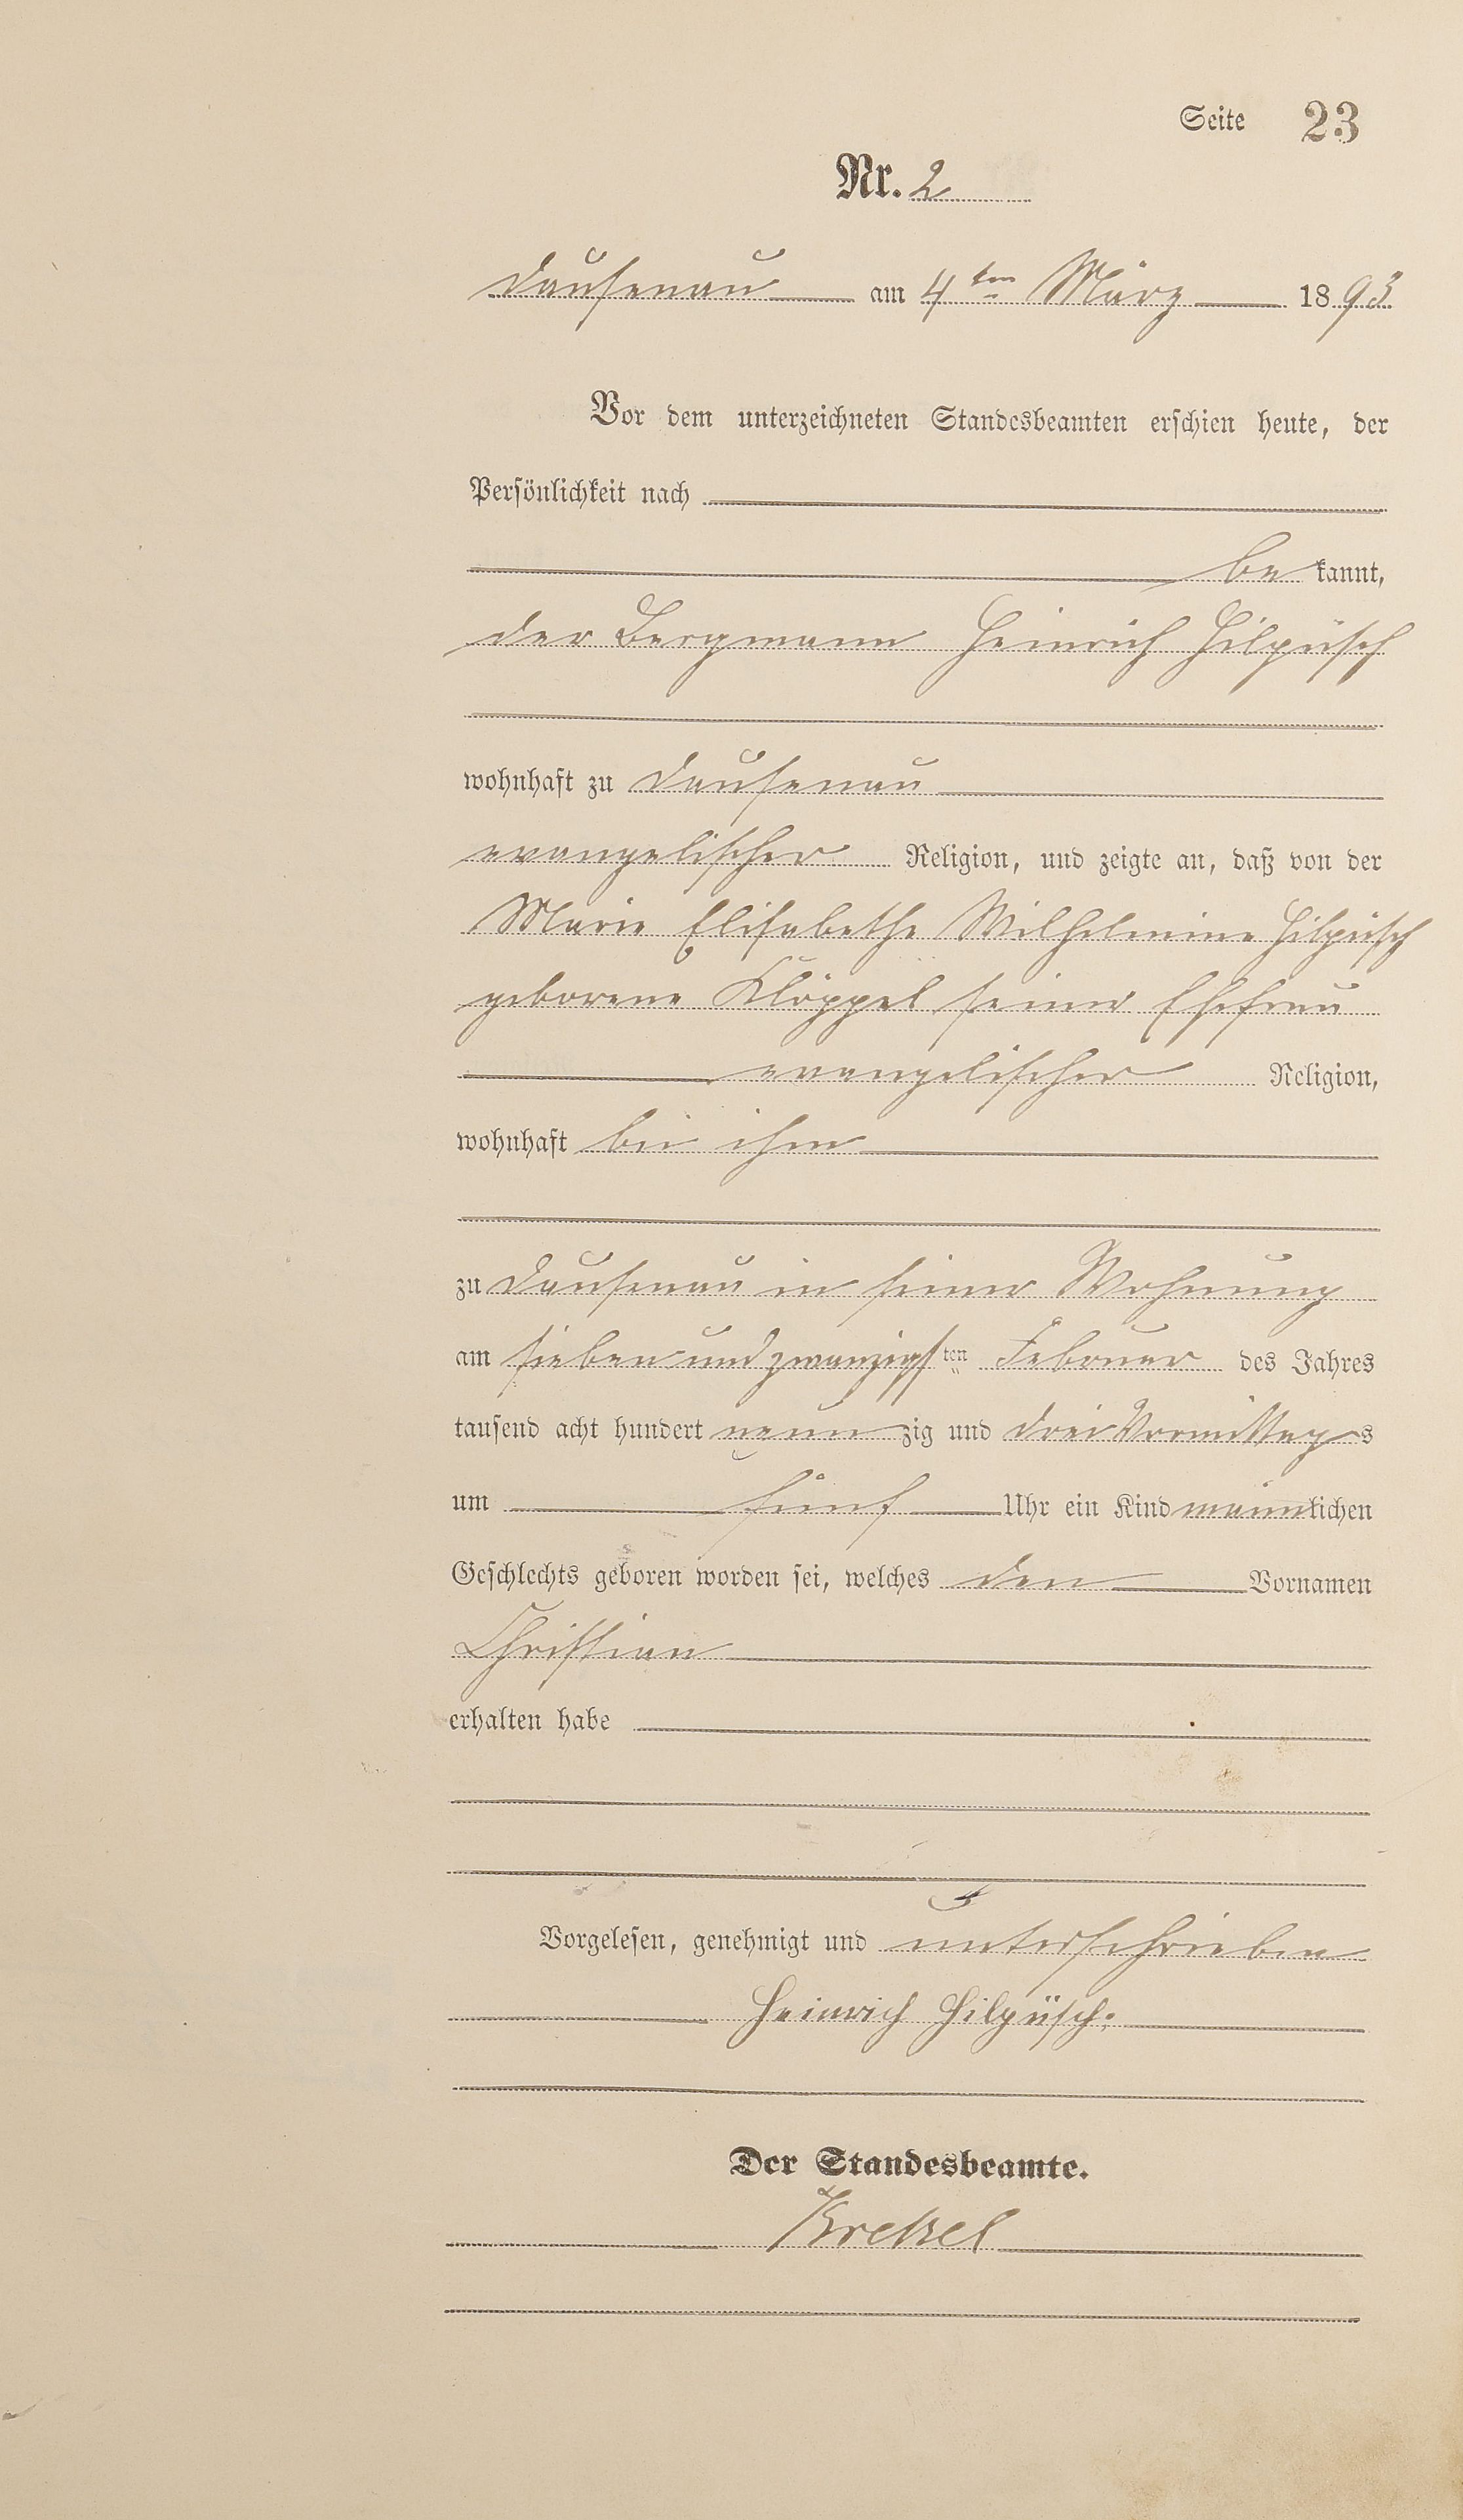 Seite 23
Nr. 2
Dausenau am 4ten März 1893
Vor dem unterzeichneten Standesbeamten erschien heute, der
Persönlichkeit nach
be kannt,
der Bergmann Heinrich Hilpüsch
wohnhaft zu Dausenau
evangelischer Religion, und zeigte an, daß von der
Marie Elisabethe Wilhelmine Hilpüsch
geborene Klöppel seiner Ehefrau
evangelischer Religion,
wohnhaft bei ihm
zu Dausenau in seiner Wohnung
am sieben und zwanzigsten Februar des Jahres
tausend acht hundert neunzig und drei Vormittags
um fünf Uhr ein Kind männlichen
Geschlechts geboren worden sei, welches den Vornamen
Christian
erhalten habe
Vorgelesen, genehmigt und unterschrieben
Heinrich Hilpüsch.
Der Standesbeamte.